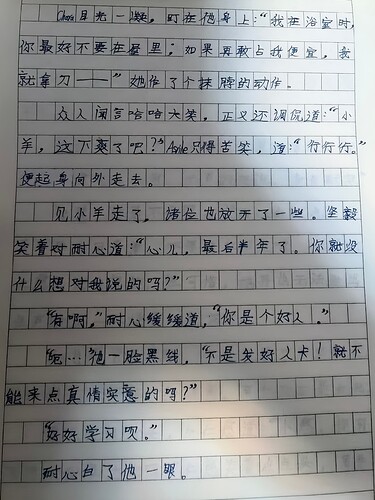 Clara目光一凝，盯在他身上：“我在浴室时，
你最好不要在屋里；如果再敢占我便宜，我
就拿刀——”她作了个抹脖的动作。
众人闻言哈哈大笑，正义还调侃道：“小
羊，这下爽了吧？”Agile只得苦笑，道：“行行行。”
便起身向外走去。
见小羊走了，诸位也放开了一些。坚毅
笑着对耐心道：“心儿，最后半年了。你就没
什么想对我说的吗？”
“有啊，”耐心缓缓道，“你是个好人。”
“呃……”他一脸黑线，“不是发好人卡！就不
能来点真情实意的吗？”
“好好学习呗。”
耐心白了他一眼。